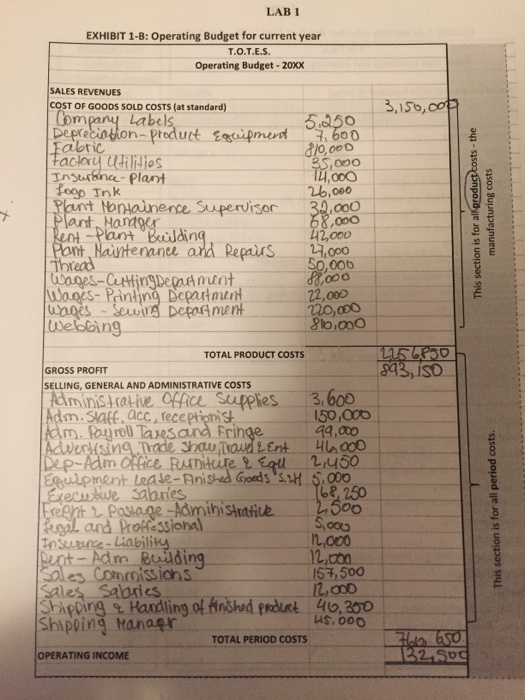 LAB 1
EXHIBIT 1-B: Operating Budget for current year
T.O.T.E.S.
Operating Budget - 20XX
SALES REVENUES 3,150,000
COST OF GOODS SOLD COSTS (at standard)
Company Labels 5,250
Depreciation-product Equipment 7,600
Fabric 810,000
Factory Utilities 35,000
Insurance-Plant 14,000
Logo Ink 26,000
Plant Maintainence Supervisor 32,000
Plant Manager 68,000
Rent-Plant Building 42,000
Plant Maintenance and Repairs 27,000
Thread 50,000
Wages-Cutting Department 88,000
Wages-Printing Department 22,000
Wages - Sewing Department 220,000
Webbing 810,000
This section is for all product costs - the manufacturing costs
TOTAL PRODUCT COSTS 2256,850
GROSS PROFIT 893,150
SELLING, GENERAL AND ADMINISTRATIVE COSTS
Administrative Office Supplies 3,600
Adm. Staff, acc, receptionist 150,000
Adm. Payroll Taxes and Fringe 99,000
Advertising, Trade Show, Travel & Ent 46,000
Dep-Adm Office Furniture & Equ 2,450
Equipment Lease-Finished Goods S&H 5,000
Executive Salaries 168,250
Freight & Postage-Administrative 2,500
Legal and Proffessional 5,000
Insurance-Liability 12,000
Rent-Adm Building 12,000
Sales Commissions 157,500
Sales Salaries 12,000
Shipping & Handling of finished product 40,350
Shipping Manager 45,000
This section is for all period costs.
TOTAL PERIOD COSTS 760,650
OPERATING INCOME 132,500